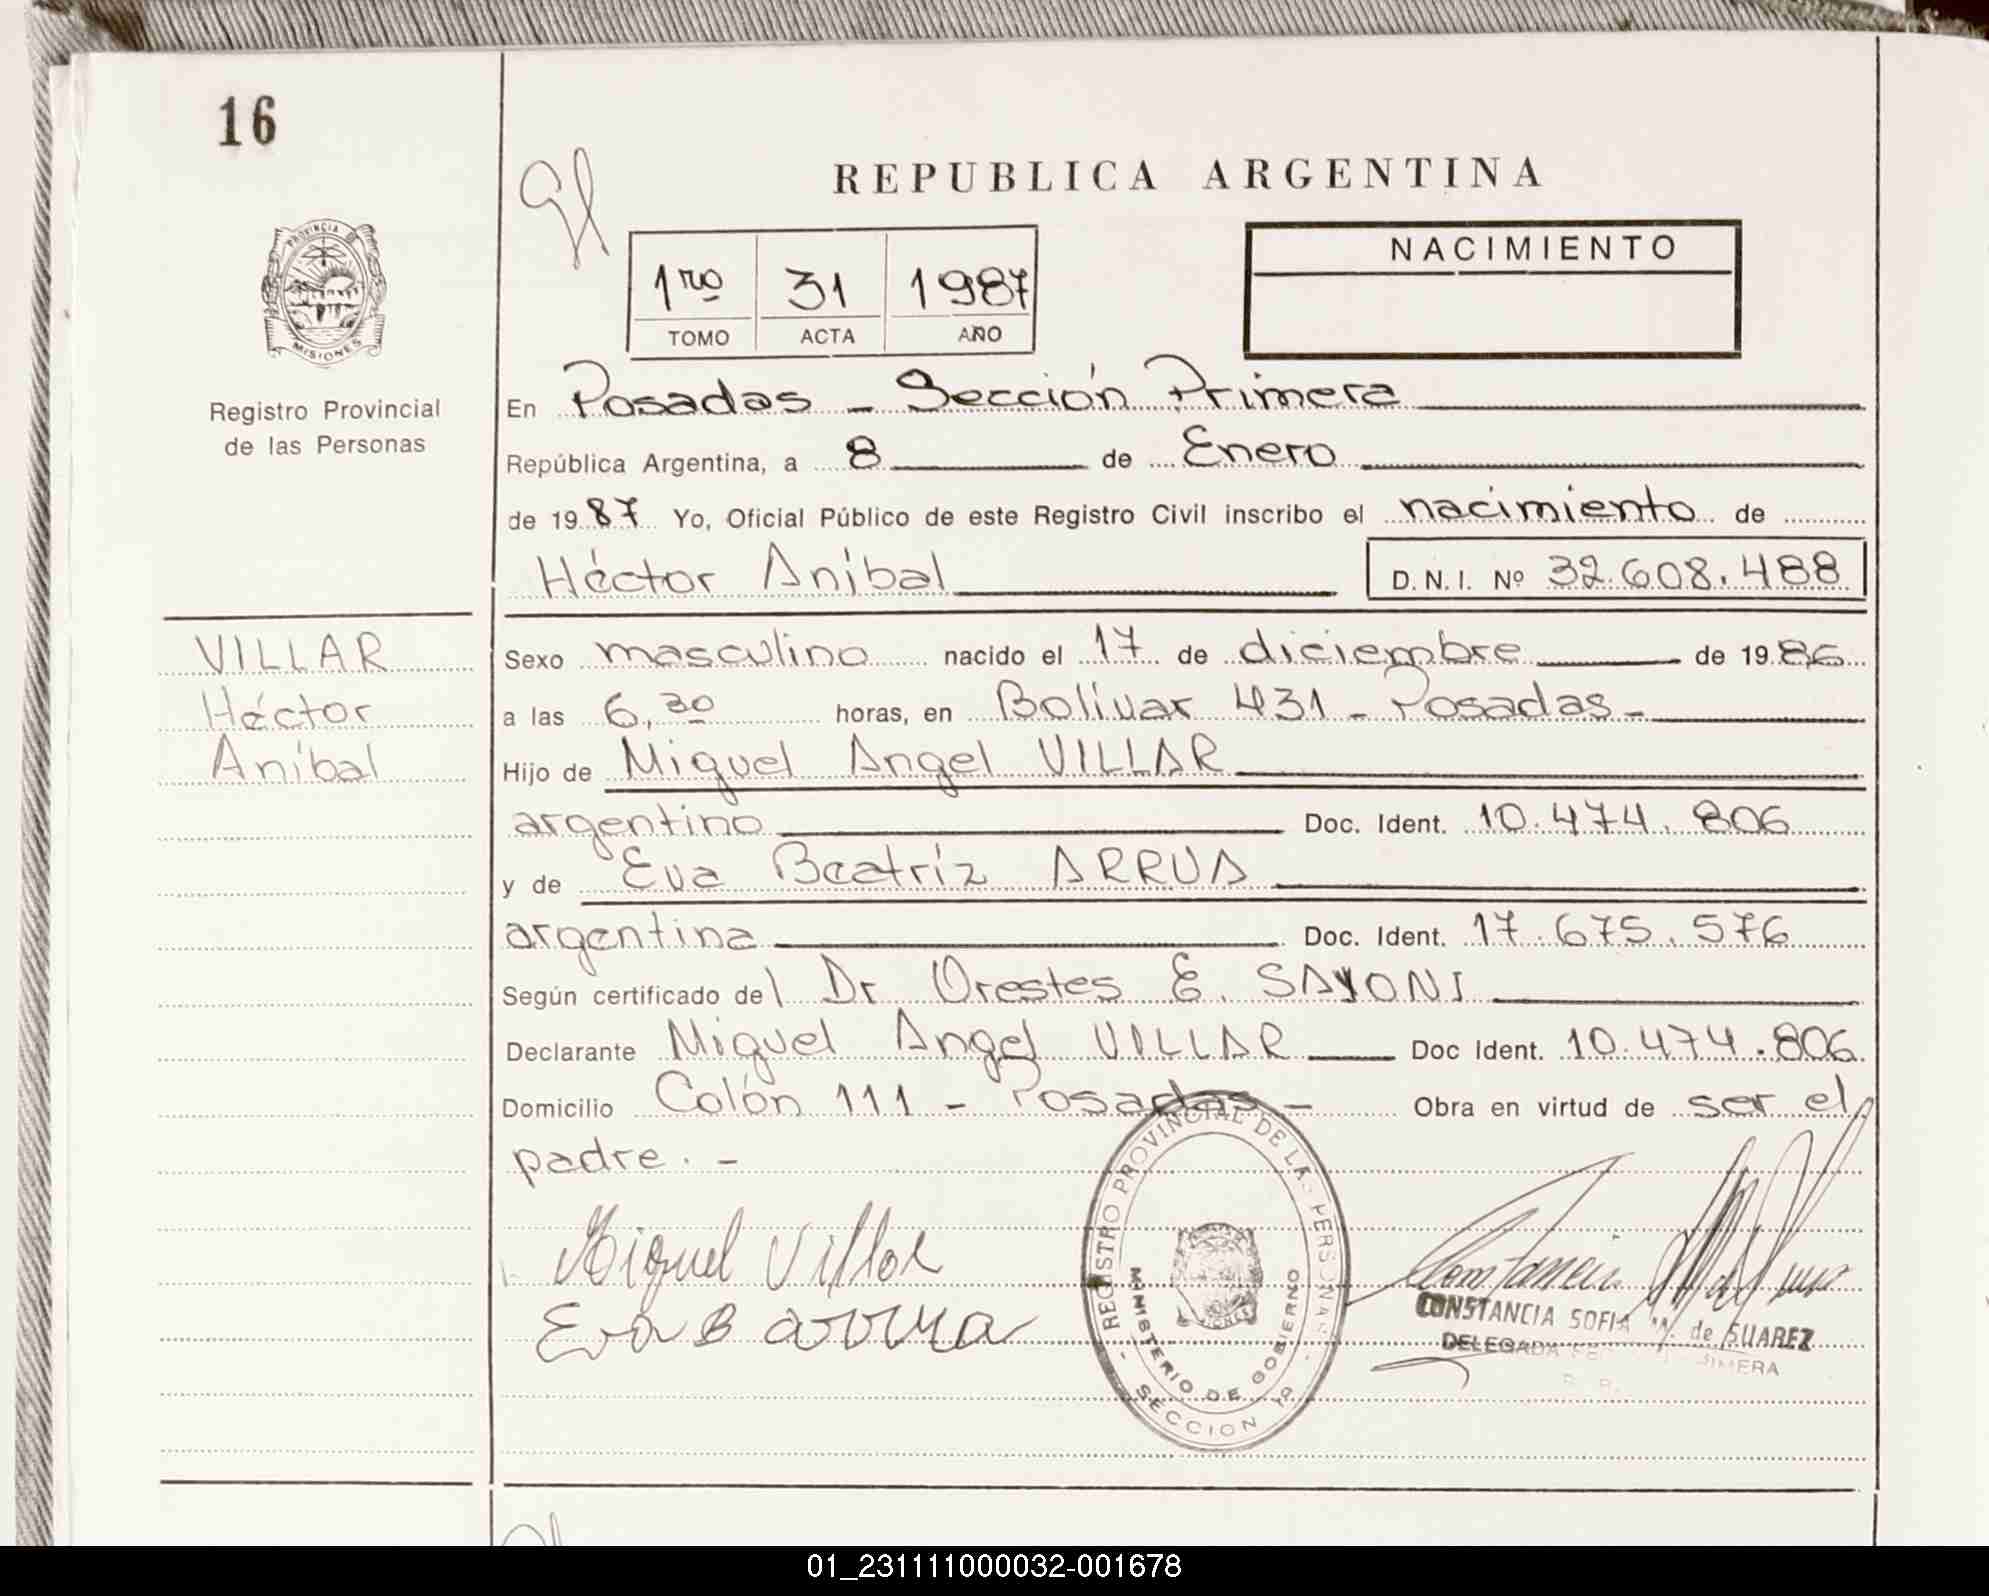 16
REPUBLICA ARGENTINA
PROVINCIA DE
MISIONES
Registro Provincial
de las Personas
1ro 31 1987
TOMO ACTA AÑO
NACIMIENTO
En Posadas - Sección Primera
República Argentina, a 8 de Enero
de 1987 Yo, Oficial Público de este Registro Civil inscribo el nacimiento de
Héctor Aníbal D.N.I. Nº 32.608.488
VILLAR
Héctor
Aníbal
Sexo masculino nacido el 17 de diciembre de 1986
a las 6,30 horas, en Bolívar 431 - Posadas -
Hijo de Miguel Angel VILLAR
argentino Doc. Ident. 10.474.806
y de Eva Beatríz ARRUA
argentina Doc. Ident. 17.675.576
Según certificado del Dr Orestes E. SAYONI
Declarante Miguel Angel VILLAR Doc Ident. 10.474.806
Domicilio Colón 111 - Posadas - Obra en virtud de ser el
padre. -
Miguel Villar
Eva B arrua
REGISTRO PROVINCIAL DE LAS PERSONAS
MINISTERIO DE GOBIERNO
MISIONES
- SECCION 1ª -
CONSTANCIA SOFIA M. de SUAREZ
DELEGADA PRIMERA
01_231111000032-001678